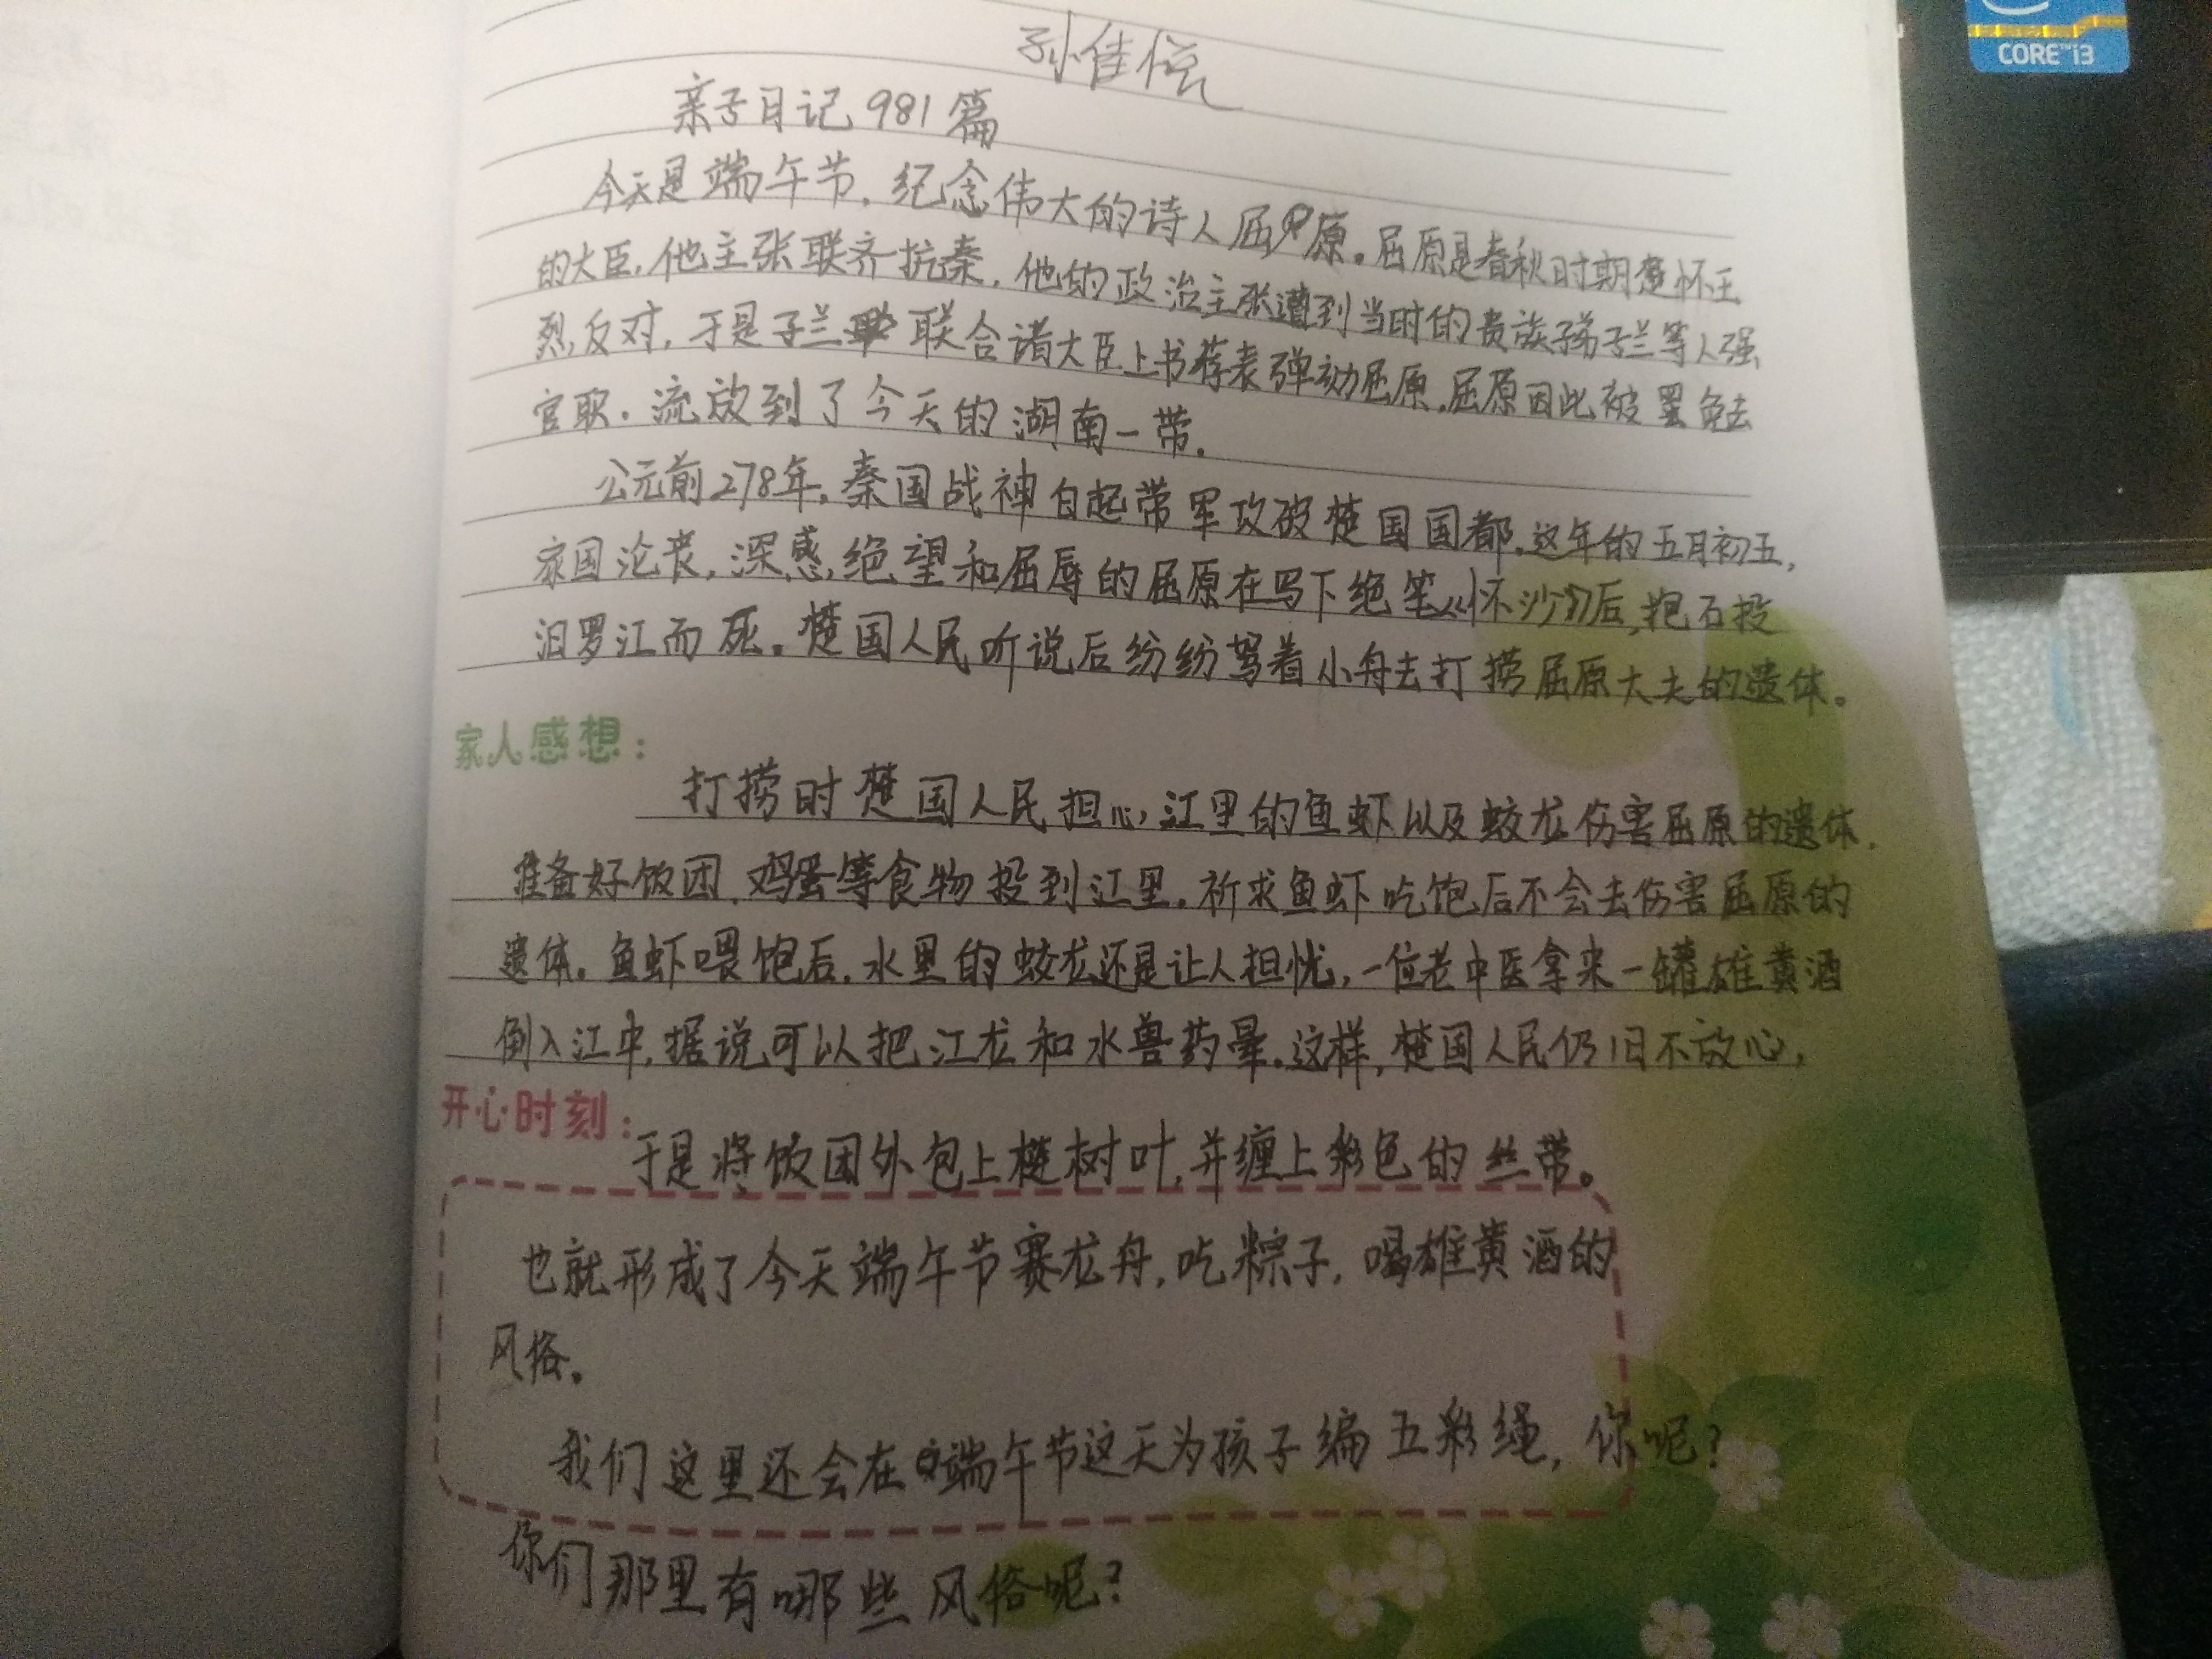 CORE™i3
孙佳悦
亲子日记981篇
今天是端午节，纪念伟大的诗人屈原。屈原是春秋时期楚怀王
的大臣，他主张联齐抗秦，他的政治主张遭到当时的贵族子兰等人强
烈反对，于是子兰联合诸大臣上书荐表弹劾屈原，屈原因此被罢免去
官职，流放到了今天的湖南一带。
公元前278年，秦国战神白起带军攻破楚国国都，这年的五月初五，
家国沦丧，深感绝望和屈辱的屈原在写下绝笔《怀沙》后，抱石投
汨罗江而死。楚国人民听说后纷纷驾着小舟去打捞屈原大夫的遗体。
家人感想：
打捞时楚国人民担心江里的鱼虾以及蛟龙伤害屈原的遗体，
准备好饭团，鸡蛋等食物投到江里，祈求鱼虾吃饱后不会去伤害屈原的
遗体。鱼虾喂饱后，水里的蛟龙还是让人担忧，一位老中医拿来一罐雄黄酒
倒入江中，据说可以把江龙和水兽药晕，这样，楚国人民仍旧不放心，
开心时刻：
于是将饭团外包上楝树叶，并缠上彩色的丝带。
也就形成了今天端午节赛龙舟，吃粽子，喝雄黄酒的
风俗。
我们这里还会在端午节这天为孩子编五彩绳，你呢？
你们那里有哪些风俗呢？